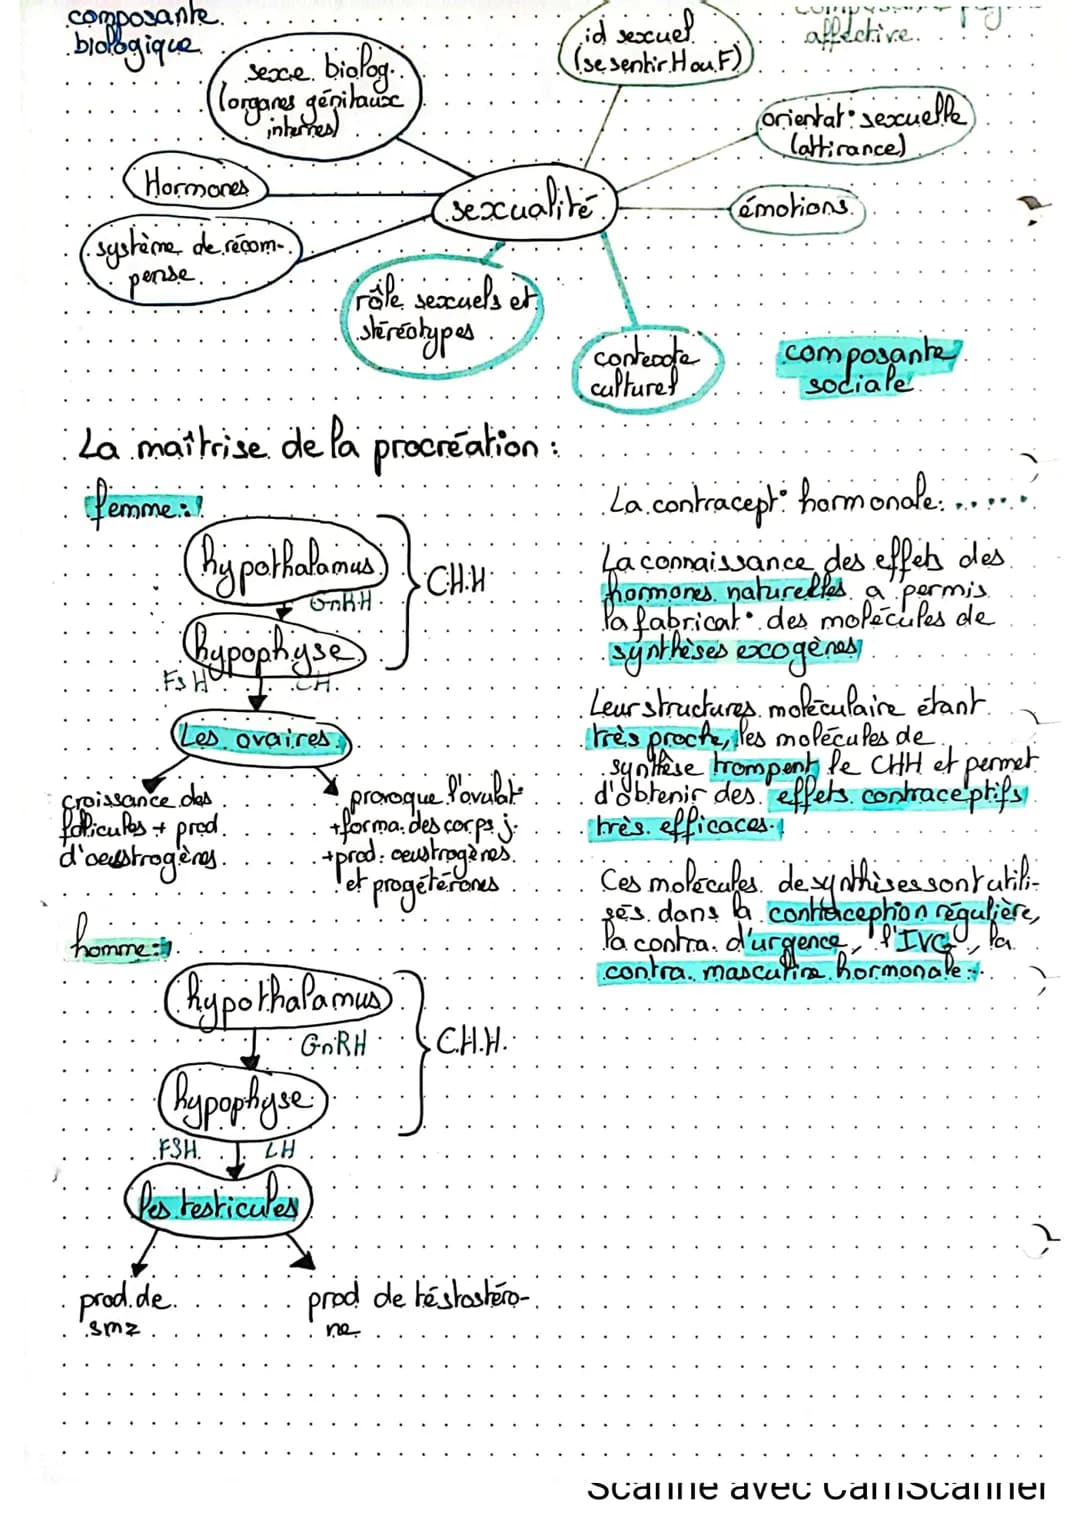 composante
biologique
sexe biolog.
(organes génitaux
internes)
id sexuel
(se sentir H ou F)
affective.
orientat° sexuelle
(attirance)
Hormones
sexualité
émotions
système de récom-
pense
rôle sexuels et
stéréotypes
contexte
culturel
composante
sociale
La maîtrise de la procréation :
femme :
hypothalamus
GnRH
C.H.H
hypophyse
FSH LH
Les ovaires
croissance des
folicules + prod.
d'oeustrogènes.
provoque l'ovulat°
+forma. des corps j.
+prod. oeustrogènes
et progétérones
homme :
hypothalamus
GnRH
C.H.H.
hypophyse
FSH LH
les testicules
prod. de
smz
prod de téstostéro-
ne
La contracept° hormonale : .....
La connaissance des effets des
hormones naturelles a permis
la fabricat° des molécules de
synthèses exogènes
Leur structures moléculaire étant
très proche, les molécules de
synthèse trompent le CHH et permet
d'obtenir des effets contraceptifs
très efficaces.
Ces molécules de synthèses sont utili-
sés dans la contraception régulière,
la contra. d'urgence, l'IVG, la
contra. masculine hormonale.
Scanné avec CamScanner